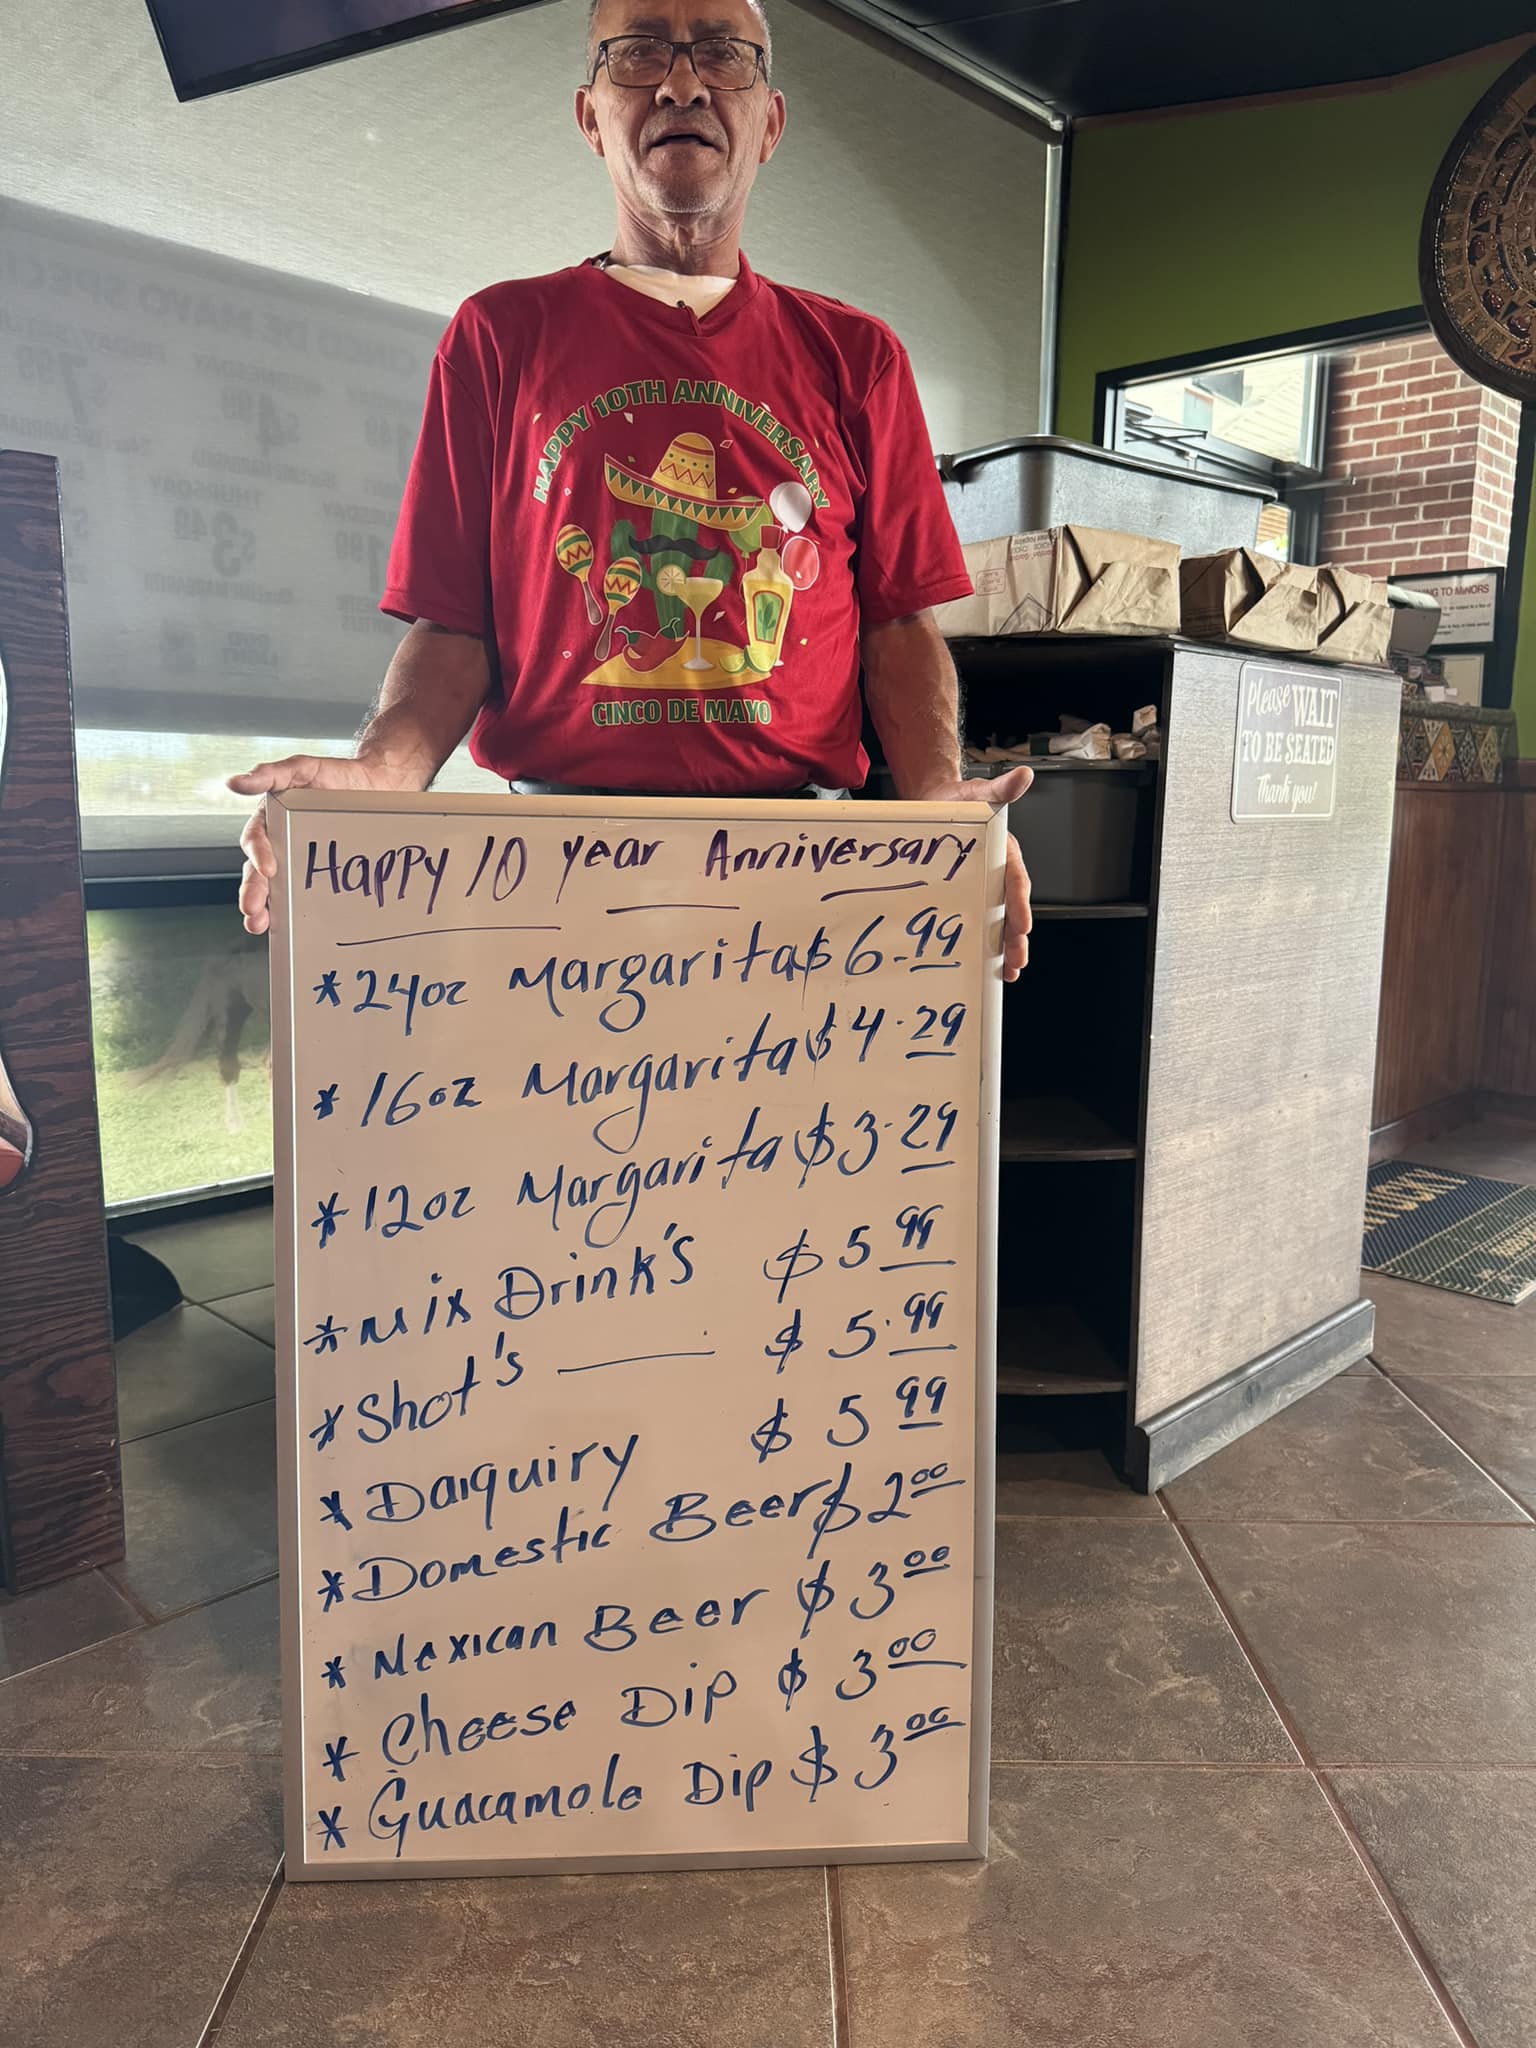 HAPPY 10TH ANNIVERSARY
CINCO DE MAYO
Happy 10 year Anniversary
*24oz Margarita $6.99
*16oz Margarita $4.29
*12oz Margarita $3.29
*Mix Drink's $5 99
*Shot's — $5.99
*Daiquiry $5 99
*Domestic Beer $2 00
*Mexican Beer $3 00
*Cheese Dip $3 00
*Guacamole Dip $3 00
Please WAIT
TO BE SEATED
Thank you!
TO MINORS
CINCO DE MAYO
WEDNESDAY
$4.99
THURSDAY
$3.49
7.99